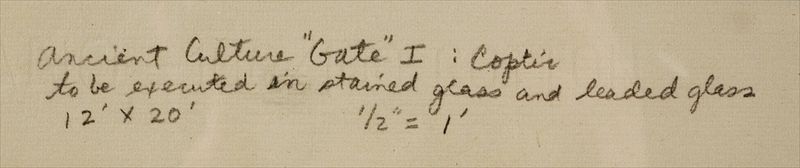 Ancient Culture "Gate" I : Coptic
to be executed in stained glass and leaded glass
12' X 20' 1/2" = 1'